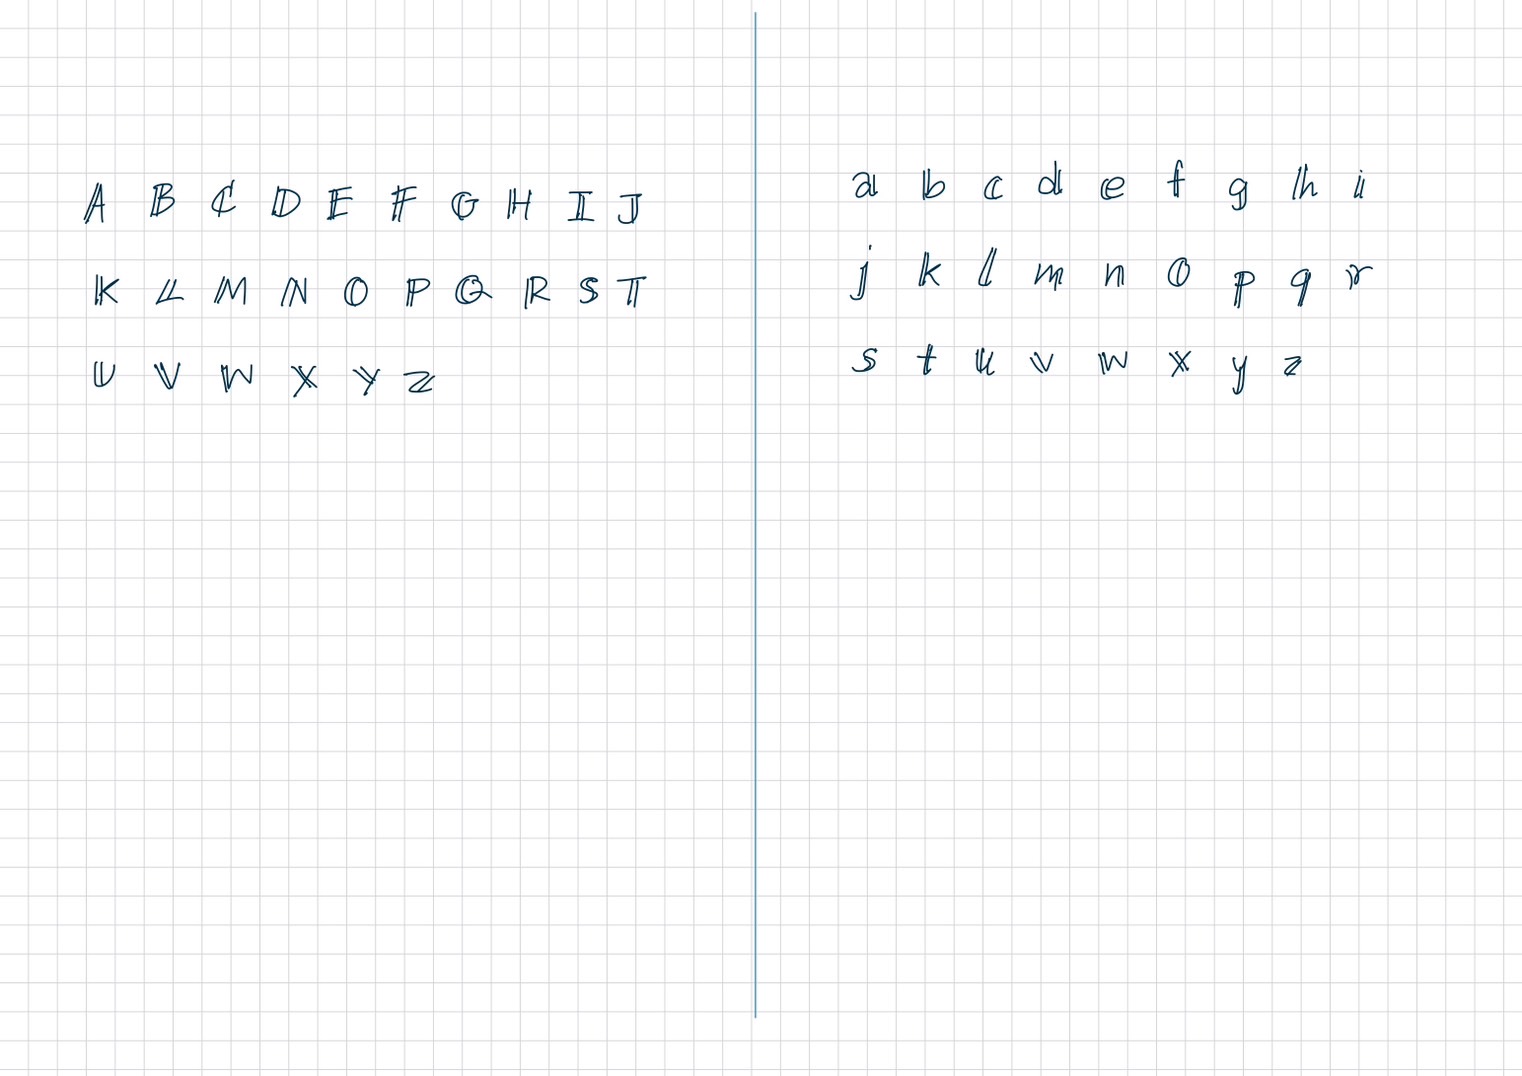 A B C D E F G H I J
K L M N O P Q R S T
U V W X Y Z
a b c d e f g h i
j k l m n o p q r
s t u v w x y z